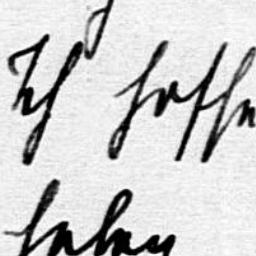 Ich hoffe
haben